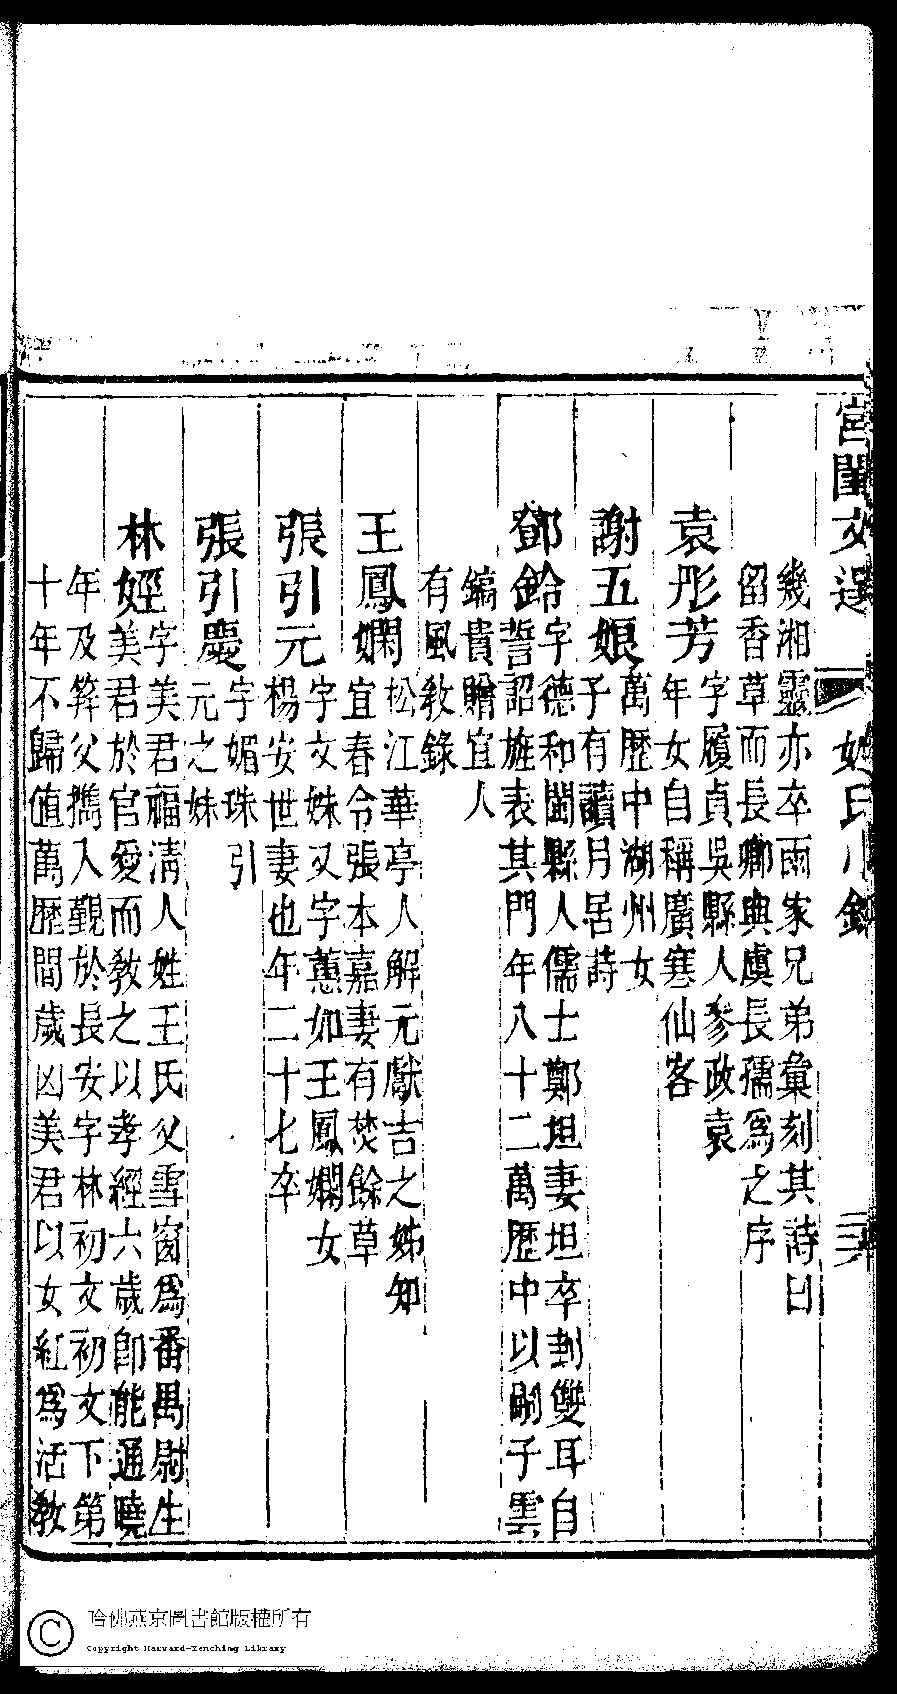 宮閨文選
姓氏小錄
幾湘靈亦卒雨家兄弟彙刻其詩曰
留香草而長卿與虞長孺爲之序
袁彤芳
字履貞吳縣人參政袁
年女自稱廣寒仙客
謝五娘
萬歷中湖州女
子有讀月居詩
鄧鈴
字德和閩縣人儒士鄭坦妻坦卒割雙耳自
誓詔旌表其門年八十二萬歷中以嗣子雲
鎬貴贈宜人
有風敎錄
王鳳嫻
松江華亭人解元獻吉之姊知
宜春令張本嘉妻有焚餘草
張引元
字文姝又字蕙如王鳳嫻女
楊安世妻也年二十七卒
張引慶
字媚珠引
元之妹
林娙
字美君福淸人姓王氏父雪窗爲番禺尉生
美君於官愛而敎之以孝經六歲卽能通曉
年及笄父擕入覲於長安字林初文初文下第
十年不歸値萬歷間歲凶美君以女紅爲活敎
哈佛燕京圖書館版權所有
Copyright Harvard-Yenching Library